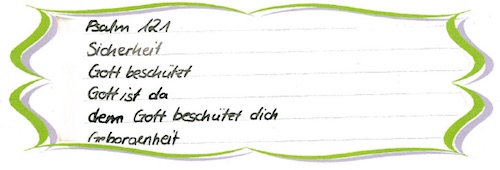 Psalm 121
Sicherheit
Gott beschützt
Gott ist da
denn Gott beschützt dich
Geborgenheit